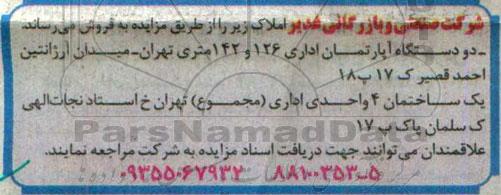 شرکت صنعتی و بازرگانی غدیر املاک زیر را از طریق مزایده به فروش می‌رساند.
ـ دو دستگاه آپارتمان اداری ۱۲۶ و ۱۴۲ متری تهران ـ میدان آرژانتین
احمد قصیر ک ۱۷ پ ۱۸
یک ساختمان ۴ واحدی اداری (مجموع) تهران خ استاد نجات‌الهی
ک سلمان پاک پ ۱۷
علاقمندان می‌توانند جهت دریافت اسناد مزایده به شرکت مراجعه نمایند.
۵ـ۸۸۱۰۰۳۵۳ ۰۹۳۵۵۰۶۷۹۳۲
ParsNamadData